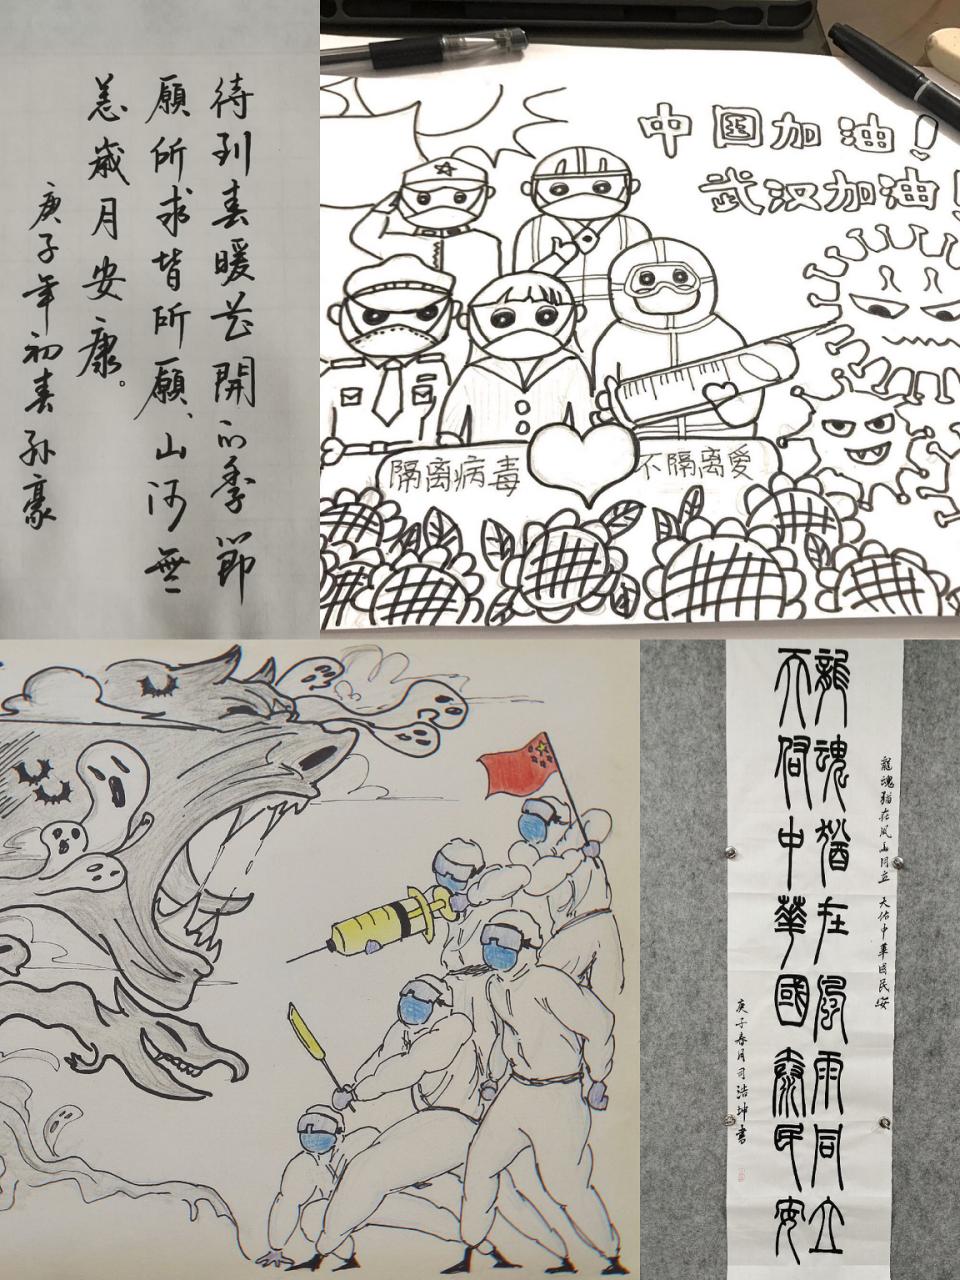 待到春暖花開的季節
願所求皆所願、山河無
恙歲月安康。
庚子年初春孙豪
中国加油！
武汉加油！
隔离病毒 不隔离愛
龍魂猶在風雨同立
天佑中華國泰民安
龍魂猶在風雨同立 天佑中華國民安
庚子春月司浩坤書